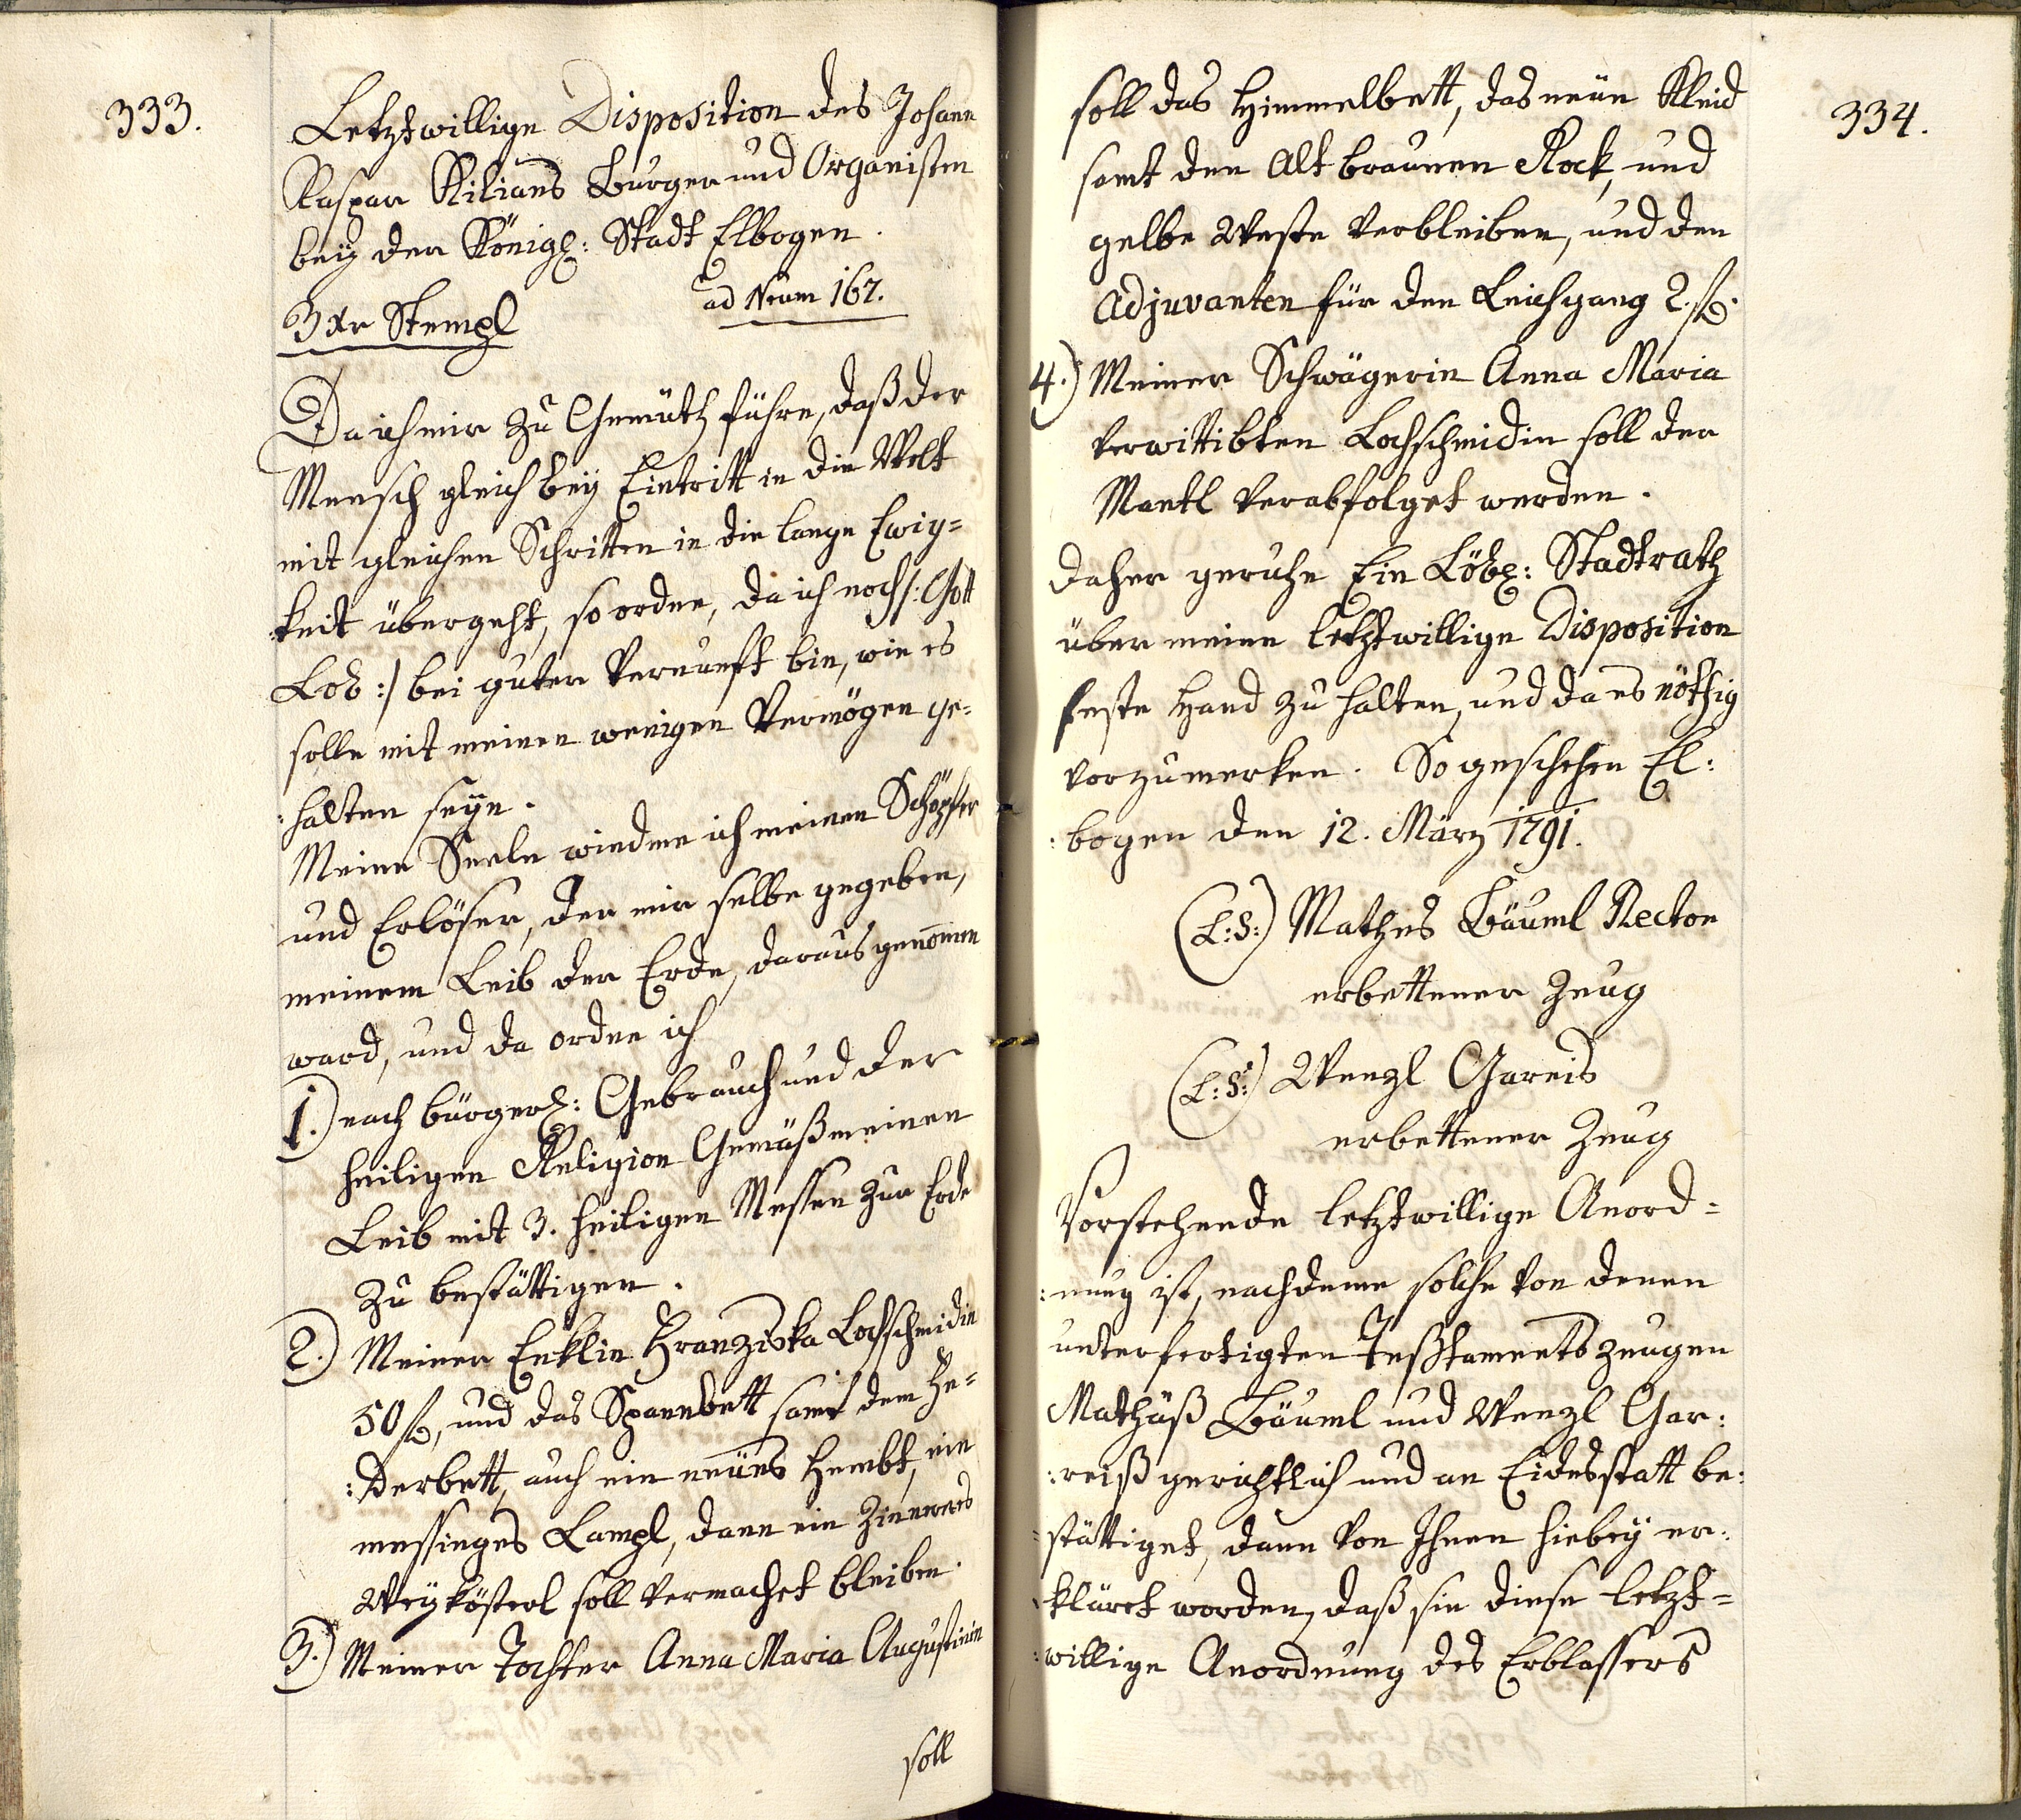 333.
Letztwillige Disposition des Johann
Kaspar Kilians Burger und Organisten
bey der Königl: Stadt Elbogen.
3 xr Stempl
ad Nrum 167.
Da ich mir zu Gemüth führe, daß der
Mensch gleich bey Eintritt in die Welt
mit gleichen Schritten in die lange Ewig=
keit übergeht, so ordne, da ich noch /: Gott
Lob :/ bei guter Vernunft bin, wie es
solle mit meinen wenigen Vermögen ge=
:halten seyn.
Meine Seele wiedme ich meinen Schöpfer
und Erlöser, der mir selbe gegeben,
meinem Leib der Erde, daraus genommen
ward, und da ordne ich
1.) nach bürgerl: Gebrauch und der
heiligen Religion Gemäß meinen
Leib mit 3. heiligen Messen zur Erde
zu bestättigen.
2.) Meiner Enklin Franziska Lochschmidin
50 f, und das Spannbett samt dem Fe=
:derbett, auch ein neues Hembt, ein
messinges Lampl, dann ein Zinneres
Weykösterl soll vermachet bleiben.
3.) Meiner Tochter Anna Maria Augustinin
soll
334.
soll das Himmelbett, das neue Kleid
samt den Alt braunen Rock, und
gelbe Weste verbleiben, und den
Adjuvanten für den Leichgang 2. f.
4.) Meiner Schwägerin Anna Maria
verwittibten Lochschmidin soll der
Mantl verabfolget werden.
Daher geruhe Ein Löbl: Stadtrath
über meine letztwillige Disposition
feste Hand zu halten, und da es nöthig
vorzumerken. So geschehen El:
:bogen den 12. März 1791.
(L:S:) Mathes Bäuml Rector
erbettener Zeug
(L:S:) Wenzl Gareis
erbettener Zeug
Vorstehende letztwillige Anord=
:nung ist, nachdeme solche von denen
unterfertigten Teßtaments zeugen
Mathäß Bäuml und Wenzl Gar:
:reiß gerichtlich und an Eidesstatt be:
=stättiget, dann von Ihnen hiebey er:
:kläret worden, daß sie diese letzt=
:willige Anordnung des Erblassers